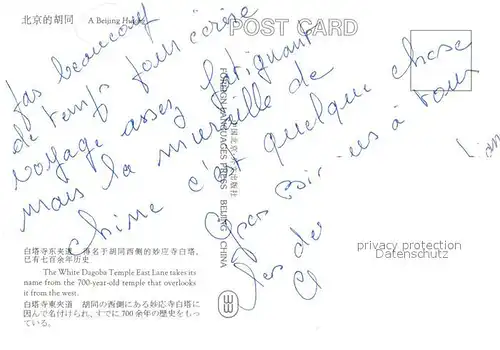 北京的胡同 A Beijing Hutong
POST CARD
pas beaucoup
de temps pour écrire
voyage assez fatiguant
mais la muraille de
Chine c'est quelque chose
à tous
外文出版社
FOREIGN LANGUAGES PRESS BEIJING CHINA
privacy protection
Datenschutz
白塔寺东夹道 得名于胡同西侧的妙应寺白塔，
已有七百余年历史
The White Dagoba Temple East Lane takes its
name from the 700-year-old temple that overlooks
it from the west.
白塔寺東夾道 胡同の西側にある妙応寺白塔に
因んで名付けられ、すでに700余年の歴史をもっ
ている。